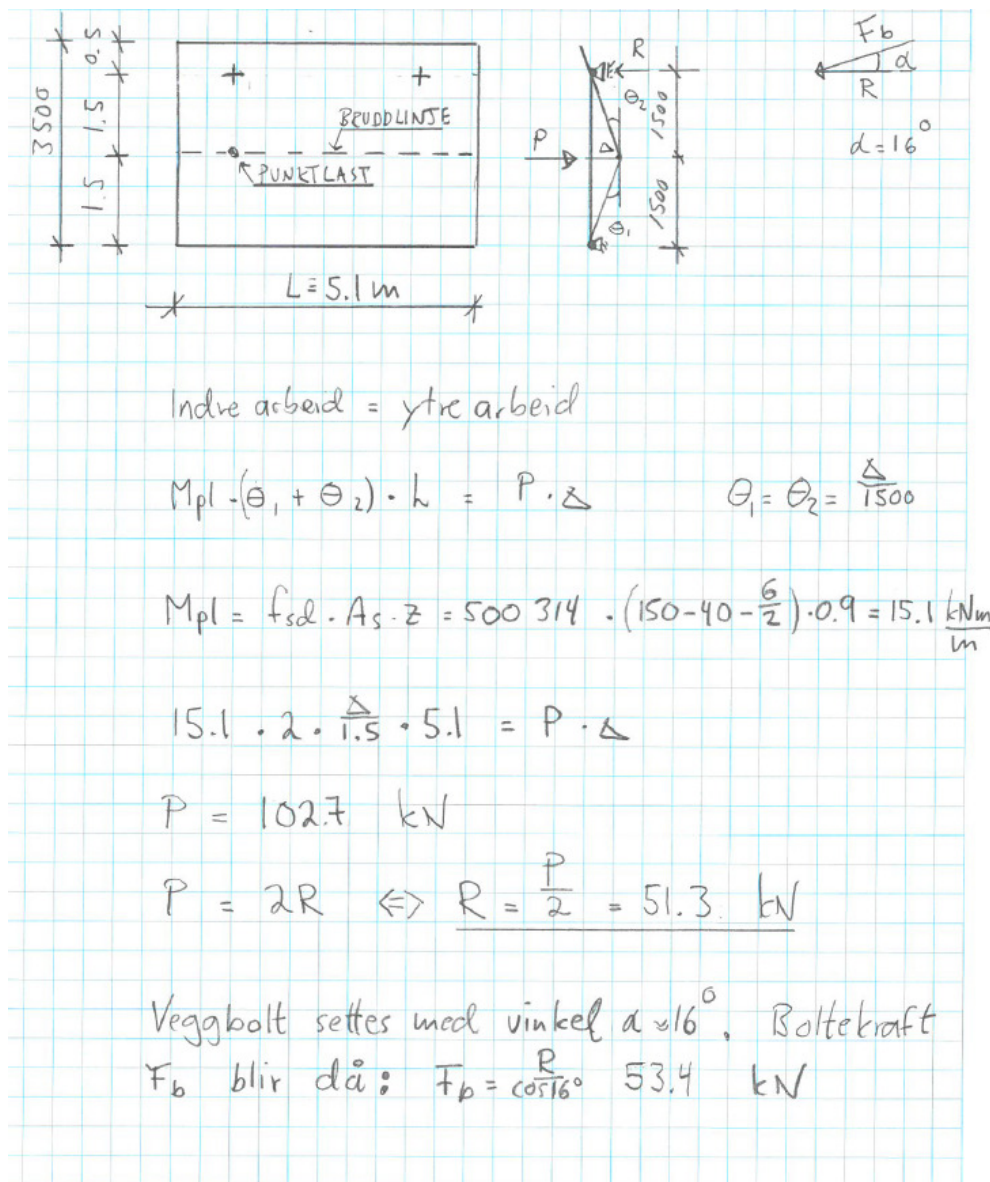 3500
0.5
1.5
1.5
BRUDDLINJE
PUNKTLAST
L = 5.1 m
P
R
θ₂
Δ
θ₁
1500
1500
Fb
α
R
α = 16°
Indre arbeid = ytre arbeid
Mpl · (θ₁ + θ₂) · L = P · Δ θ₁ = θ₂ = Δ/1500
Mpl = fsd · As · z = 500 314 · (150-40-6/2) · 0.9 = 15.1 kNm/m
15.1 · 2 · Δ/1.5 · 5.1 = P · Δ
P = 102.7 kN
P = 2R ⇔ R = P/2 = 51.3 kN
Veggbolt settes med vinkel α ≈ 16°. Boltekraft
Fb blir då: Fb = R/cos16° 53.4 kN